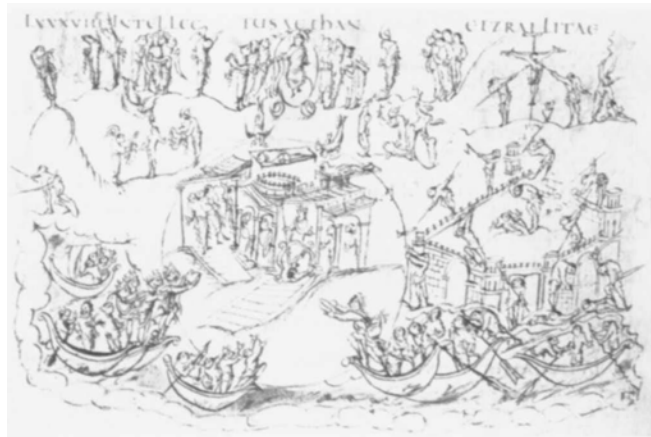 LXXXVIII INTELLEC TUS AETHAN EIZRAELITAE